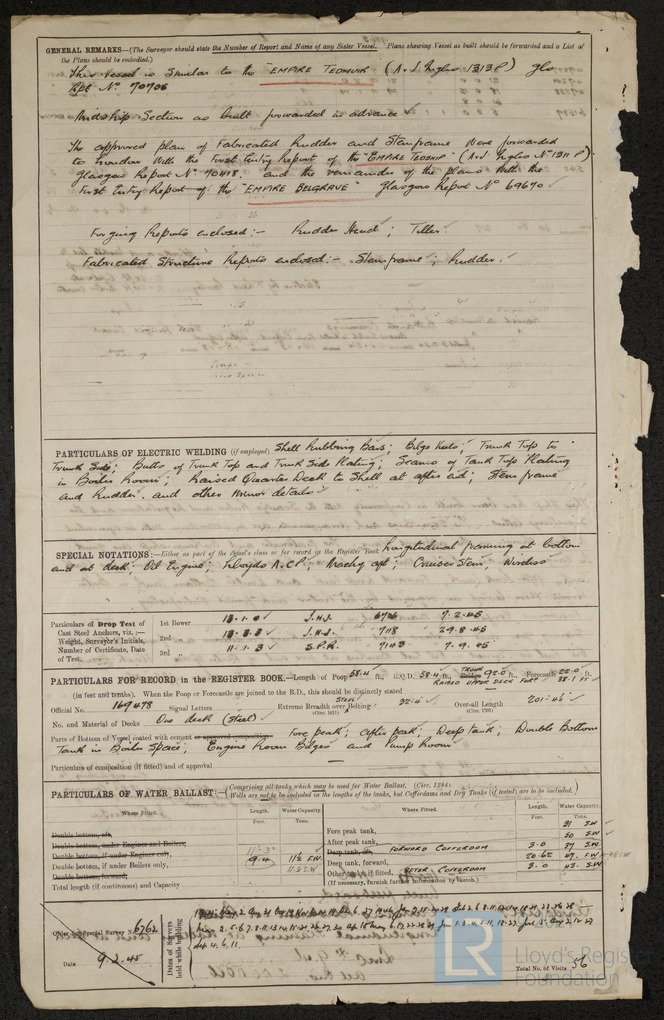 GENERAL REMARKS—(The Surveyor should state the Number of Report and Name of any Sister Vessel. Plans showing Vessel as built should be forwarded and a List of
the Plans should be embodied.)
This Vessel is Similar to the "EMPIRE TEDMUIR" (A & J Inglis 1313P) Gls
Rpt No 70706
Midship Section as built forwarded in advance
The approved plan of Fabricated Rudder and Sternframe were forwarded
to London with the First Entry Report of the "EMPIRE TEDSHIP" (A & J Inglis No 1311 P)
Glasgow Report No 70418, and the remainder of the plans with the
First Entry Report of the "EMPIRE BELGRAVE" Glasgow Report No 69670
Forging Reports enclosed:- Rudder Head; Tiller.
Fabricated Structure Reports enclosed:- Sternframe; Rudder.
PARTICULARS OF ELECTRIC WELDING (if employed) Shell Rubbing Bars; Bilge Keels; Trunk Top to
Trunk Side; Butts of Trunk Top and Trunk Side Plating; Seams of Tank Top Plating
in Boiler Room; Raised Quarter Deck to Shell at after end; Stern frame
and Rudder. and other minor details
SPECIAL NOTATIONS:—Either as part of the vessel's class or for record in the Register Book. Longitudinal framing at bottom
and at deck; Oil Engine; Lloyds A & CP; Machy aft; Cruiser Stern; Wireless
Particulars of Drop Test of
Cast Steel Anchors, viz.:—
Weight, Surveyor's Initials,
Number of Certificate, Date
of Test.
1st Bower J.H.J. 6706 7.2.45
2nd „ J.H.J. 7118 29.8.45
3rd „ 11.1.3 S.P.R. 7143 7.9.45
PARTICULARS FOR RECORD in the REGISTER BOOK.—Length of Poop 58.4 ft., R.Q.D. 58.4 ft., TRUNK Bridge 92.0 ft., Forecastle 22.0 ft.
RAISED UPPER DECK FORD 38.1 FT
(in feet and tenths). When the Poop or Forecastle are joined to the B.D., this should be distinctly stated
Official No. 169478 Signal Letters Extreme Breadth over Belting 32.4 (Circ. 1611) Over-all Length 201.46 (Circ. 1703)
No. and Material of Decks One deck (steel)
Parts of Bottom of Vessel coated with cement or approved composition Fore peak; after peak; Deep tank; Double Bottom
Tank in Boiler Space; Engine Room Bilges and Pump Room
Particulars of composition (if fitted) and of approval —
PARTICULARS OF WATER BALLAST:—(Comprising all tanks which may be used for Water Ballast. (Circ. 1284.)
(Wells are not to be included in the lengths of the tanks, but Cofferdams and Dry Tanks (if tested) are to be included.)
Where Fitted. Length. Feet. Water Capacity. Tons.
Double bottom, aft,
Double bottom, under Engines and Boilers,
Double bottom, if under Engines only,
Double bottom, if under Boilers only, 9.4 11½ F.W
Double bottom, forward,
Total length (if continuous) and Capacity
Where Fitted. Length. Feet. Water Capacity. Tons.
Fore peak tank, 31 SW
After peak tank, 50 SW
Deep tank, aft, FORWARD COFFERDAM 3.0 37 SW
Deep tank, forward, 20.62 47 FW
Other tanks, if fitted, AFTER COFFERDAM 3.0 43 SW
(If necessary, furnish further information by sketch.)
Order for Special Survey No. 6762
Date 9.2.45
Dates of Surveys held while building
Total No. of Visits 56
LR
Lloyd's Register
Foundation